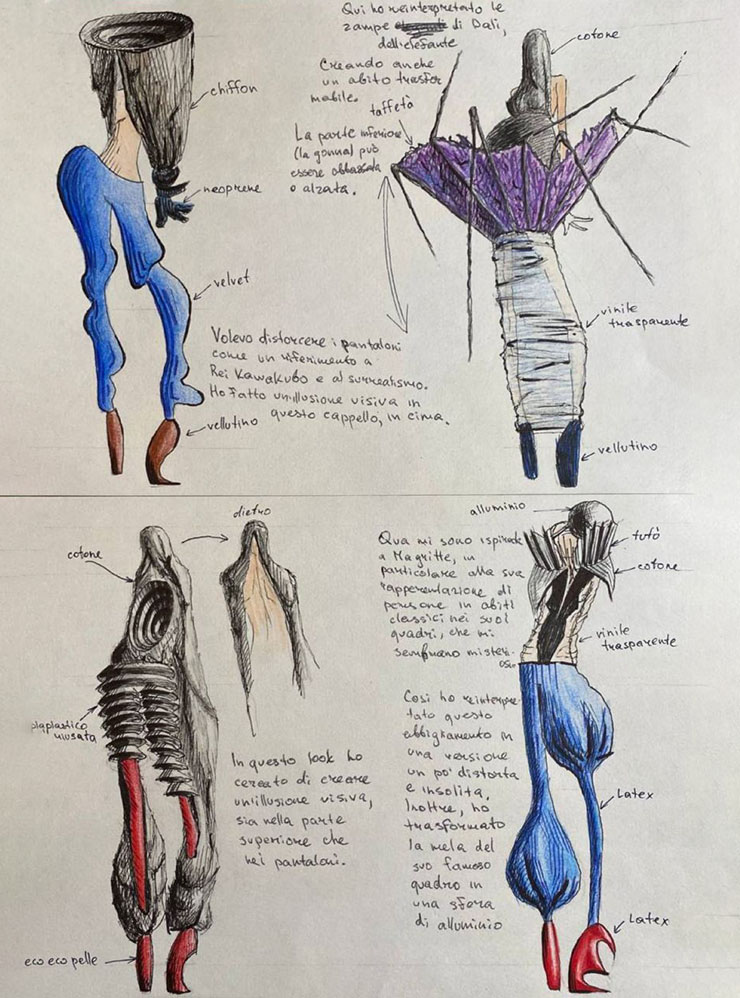 Qui ho reinterpretato le
zampe di Dali,
dell'elefante
Creando anche
un abito trasfor
mabile.
taffetà
La parte inferiore
(la gonna) può
essere abbassata
o alzata.
cotone
chiffon
neoprene
velvet
Volevo distorcere i pantaloni
come un riferimento a
Rei Kawakubo e al surrealismo.
Ho fatto un'illusione visiva in
questo cappello, in cima.
vellutino
vinile
trasparente
vellutino
cotone
dietro
plastica
riusata
In questo look ho
cercato di creare
un'illusione visiva,
sia nella parte
superiore che
nei pantaloni.
eco eco pelle
alluminio
Qua mi sono ispirata
a Magritte, in
particolare alla sua
rappresentazione di
persone in abiti
classici nei suoi
quadri, che mi
sembrano misteri-
osi.
tutù
cotone
vinile
trasparente
Così ho reinterpre
tato questo
abbigliamento in
una versione
un po' distorta
e insolita,
Inoltre, ho
trasformato
la mela del
suo famoso
quadro in
una sfera
di alluminio
Latex
Latex